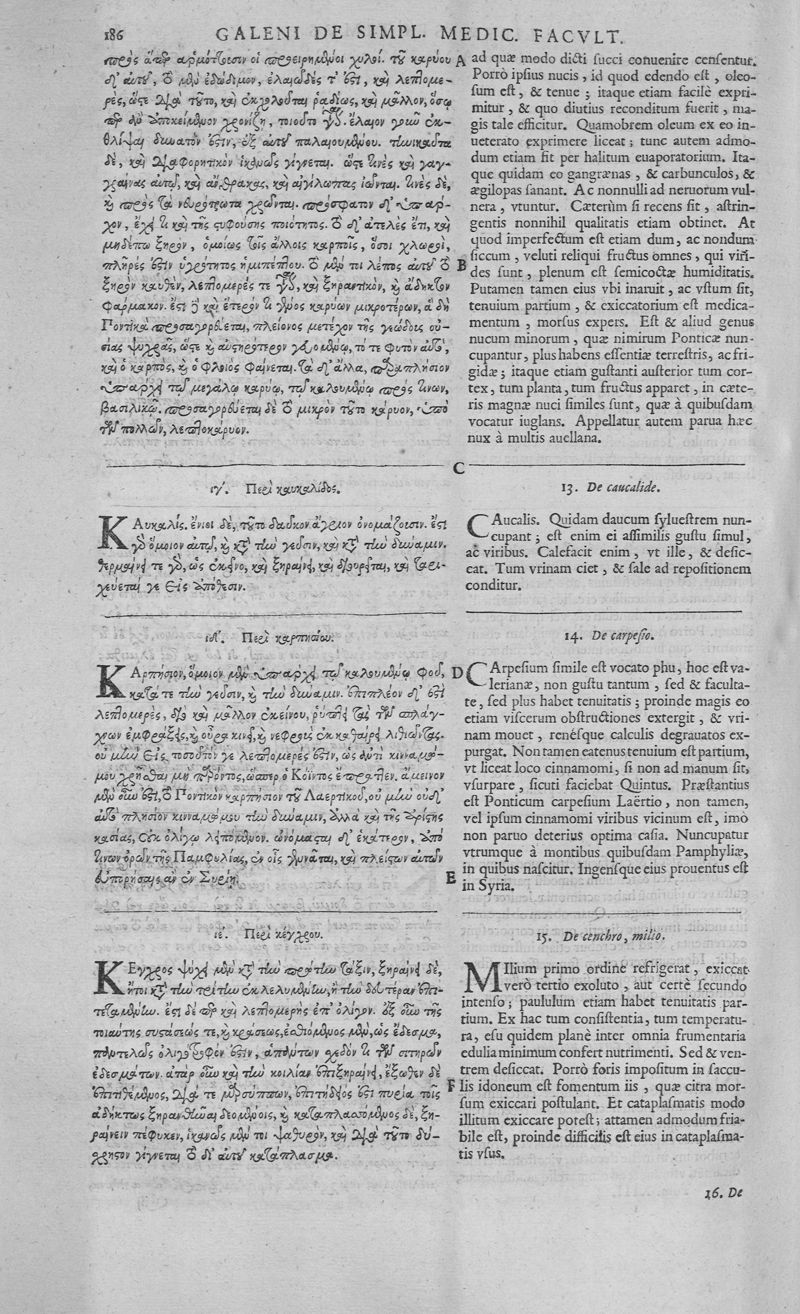 186 GALENI DE SIMPL. MEDIC. FACVLT.
πρὸς ἅπερ ἁρμόττουσιν οἱ προειρημένοι χυλοί. τοῦ καρύου
δ' αὐτοῦ, τὸ μὲν ἐδώδιμον, ἐλαιῶδές τ' ἐστὶ, καὶ λεπτομε-
ρὲς, ὥστε διὰ τοῦτο, καὶ ἐκχυλοῦται ῥᾳδίως, καὶ μᾶλλον, ὅσῳ
περ ἂν ἀποκείμενον χρονίζῃ, τοιοῦτο γίνεται. ἔλαιον γοῦν ἐκ-
θλίψαι δυνατόν ἐστιν, ἐξ αὐτοῦ παλαιουμένου. τηνικαῦτα
δὲ, καὶ διαφορητικὸν ἱκανῶς γίγνεται. ὥστε τινὲς καὶ γαγ-
γραίνας αὐτῷ, καὶ ἄνθρακας, καὶ αἰγίλωπας ἰῶνται. τινὲς δὲ,
καὶ πρὸς τὰ νευρότρωτα χρῶνται. πρόσφατον δ' ὑπάρ-
χον, ἔχει τι καὶ τῆς στυφούσης ποιότητος. τὸ δ' ἀτελὲς ἔτι, καὶ
μηδέπω ξηρὸν, ὁμοίως τοῖς ἄλλοις καρποῖς, ὅσοι χλωροὶ,
πλῆρές ἐστιν ὑγρότητος ἡμιπέπτου. τὸ μέν τοι λέπος αὐτοῦ τὸ
ξηρὸν καυθὲν, λεπτομερές τε γίνεται, καὶ ξηραντικὸν, καὶ ἄδηκτον
φάρμακον. ἔστι δὲ καὶ ἕτερόν τι γένος καρύων μικροτέρων, ἃ δὴ
Ποντικὰ προσαγορεύεται, πλείονος μετέχον τῆς γεώδους οὐ-
σίας ψυχρᾶς, ὥστε καὶ αὐστηρότερον γευομένῳ, τό τε φυτὸν αὐτὸ,
καὶ ὁ καρπὸς, καὶ ὁ φλοιὸς φαίνεται. τὰ δ' ἄλλα, παραπλήσιον
ὑπάρχει τῷ μεγάλῳ καρύῳ, τῷ καλουμένῳ πρός τινων,
βασιλικῷ. προσαγορεύεται δὲ τὸ μικρὸν τοῦτο κάρυον, ὑπὸ
τῶν πολλῶν, λεπτοκάρυον.
A ad quæ modo dicti ſucci conuenire cenſentur.
Porrò ipſius nucis, id quod edendo eſt, oleo-
ſum eſt, & tenue; itaque etiam facilè expri-
mitur, & quo diutius reconditum fuerit, ma-
gis tale efficitur. Quamobrem oleum ex eo in-
ueterato exprimere liceat; tunc autem admo-
dum etiam fit per halitum euaporatorium. Ita-
que quidam eo gangrænas, & carbunculos, &
ægilopas ſanant. Ac nonnulli ad neruorum vul-
nera, vtuntur. Cæterùm ſi recens ſit, aſtrin-
gentis nonnihil qualitatis etiam obtinet. At
quod imperfectum eſt etiam dum, ac nondum
B ſiccum, veluti reliqui fructus omnes, qui viri-
des ſunt, plenum eſt ſemicoctæ humiditatis.
Putamen tamen eius vbi inaruit, ac vſtum ſit,
tenuium partium, & exiccatorium eſt medica-
mentum, morſus expers. Eſt & aliud genus
nucum minorum, quæ nimirum Ponticæ nun-
cupantur, plus habens eſſentiæ terreſtris, ac fri-
gidæ; itaque etiam guſtanti auſterior tum cor-
tex, tum planta, tum fructus apparet, in cæte-
ris magnæ nuci ſimiles ſunt, quæ à quibuſdam
vocatur iuglans. Appellatur autem parua hæc
nux à multis auellana.
C
ιγʹ. Περὶ καυκαλίδος.
ΚΑυκαλίς. ἔνιοι δὲ, τοῦτο δαῦκον ἄγριον ὀνομάζουσιν. ἔστι
γὰρ ὅμοιον αὐτῷ, καὶ κατὰ τὴν γεῦσιν, καὶ κατὰ τὴν δύναμιν.
θερμαίνει τε γὰρ, ὡς ἐκεῖνο, καὶ ξηραίνει, καὶ διουρεῖται, καὶ ταρι-
χεύεταί γε εἰς ἀπόθεσιν.
13. De caucalide.
CAucalis. Quidam daucum ſylueſtrem nun-
cupant; eſt enim ei aſſimilis guſtu ſimul,
ac viribus. Calefacit enim, vt ille, & deſic-
cat. Tum vrinam ciet, & ſale ad repoſitionem
conditur.
ιδʹ. Περὶ καρπησίου.
ΚΑρπήσιον, ὅμοιον μὲν ὑπάρχει τῷ καλουμένῳ φοῦ,
κατά τε τὴν γεῦσιν, καὶ τὴν δύναμιν. ἐπιπλέον δ' ἐστὶ
λεπτομερὲς, διὸ καὶ μᾶλλον ἐκείνου, ῥύπτει τὰς τῶν σπλάγ-
χνων ἐμφράξεις, καὶ οὖρα κινεῖ, καὶ νεφροὺς ἐκκαθαίρει λιθιῶντας.
οὐ μὴν εἰς τοσοῦτόν γε λεπτομερές ἐστιν, ὡς ἀντὶ κινναμώ-
μου χρῆσθαι μὴ παρόντος, ὥσπερ ὁ Κόϊντος ἔπραττεν. ἄμεινον
μὲν οὖν ἐστι, τὸ Ποντικὸν καρπήσιον τοῦ Λαερτικοῦ, οὐ μὴν οὐδ'
αὐτὸ πλησίον κινναμώμου τὴν δύναμιν, ἀλλὰ καὶ τῆς ἀρίστης
κασίας, οὐκ ὀλίγῳ λειπόμενον. ὠνόμασται δ' ἑκάτερον, ἀπό
τινων ὀρῶν τῆς Παμφυλίας, ἐν οἷς γεννᾶται, καὶ πλεῖστον αὐτῶν
εὐπορήσαις ἂν ἐν Συρίῃ.
14. De carpeſio.
D CArpeſium ſimile eſt vocato phu, hoc eſt va-
lerianæ, non guſtu tantum, ſed & faculta-
te, ſed plus habet tenuitatis; proinde magis eo
etiam viſcerum obſtructiones extergit, & vri-
nam mouet, renéſque calculis degrauatos ex-
purgat. Non tamen eatenus tenuium eſt partium,
vt liceat loco cinnamomi, ſi non ad manum ſit,
vſurpare, ſicuti faciebat Quintus. Præſtantius
eſt Ponticum carpeſium Laërtio, non tamen,
vel ipſum cinnamomi viribus vicinum eſt, imò
non paruo deterius optima caſia. Nuncupatur
vtrumque à montibus quibuſdam Pamphyliæ,
in quibus naſcitur. Ingenſque eius prouentus eſt
E in Syria.
ιεʹ. Περὶ κέγχρου.
ΚΕγχρος ψύχει μὲν κατὰ τὴν πρώτην τάξιν, ξηραίνει δὲ,
ἤτοι κατὰ τὴν τρίτην ἐκλελυμένην, ἢ τὴν δευτέραν ἐπι-
τεταμένην. ἔστι δέ περ καὶ λεπτομερὴς ἐπ' ὀλίγον. ἐξ οὖν τῆς
τοιαύτης συστάσεώς τε, καὶ κράσεως, ἐσθιόμενος μὲν, ὡς ἔδεσμα,
παντελῶς ὀλιγότροφόν ἐστιν, ἁπάντων σχεδόν τι τῶν σιτηρῶν
ἐδεσμάτων. ἀτὰρ οὖν καὶ τὴν κοιλίαν ἐπιξηραίνει, ἔξωθεν δὲ
ἐπιτιθέμενος, διά τε μαρσύππων, ἐπιτήδειός ἐστι πυρία τοῖς
ἀδήκτως ξηρανθῆναι δεομένοις, καὶ καταπλασσόμενος δὲ, ξη-
ραίνειν πέφυκεν, ἱκανῶς μέν τοι ψαθυρὸν, καὶ διὰ τοῦτο δύ-
χρηστον γίγνεται τὸ δι' αὐτοῦ κατάπλασμα.
15. De cenchro, milio.
MIlium primo ordine refrigerat, exiccat
verò tertio exoluto, aut certè ſecundo
intenſo; paululum etiam habet tenuitatis par-
tium. Ex hac tum conſiſtentia, tum temperatu-
ra, eſu quidem planè inter omnia frumentaria
edulia minimum confert nutrimenti. Sed & ven-
trem deſiccat. Porrò foris impoſitum in ſaccu-
F lis idoneum eſt fomentum iis, quæ citra mor-
ſum exiccari poſtulant. Et cataplaſmatis modo
illitum exiccare poteſt; attamen admodum fria-
bile eſt, proinde difficilis eſt eius in cataplaſma-
tis vſus.
16. De